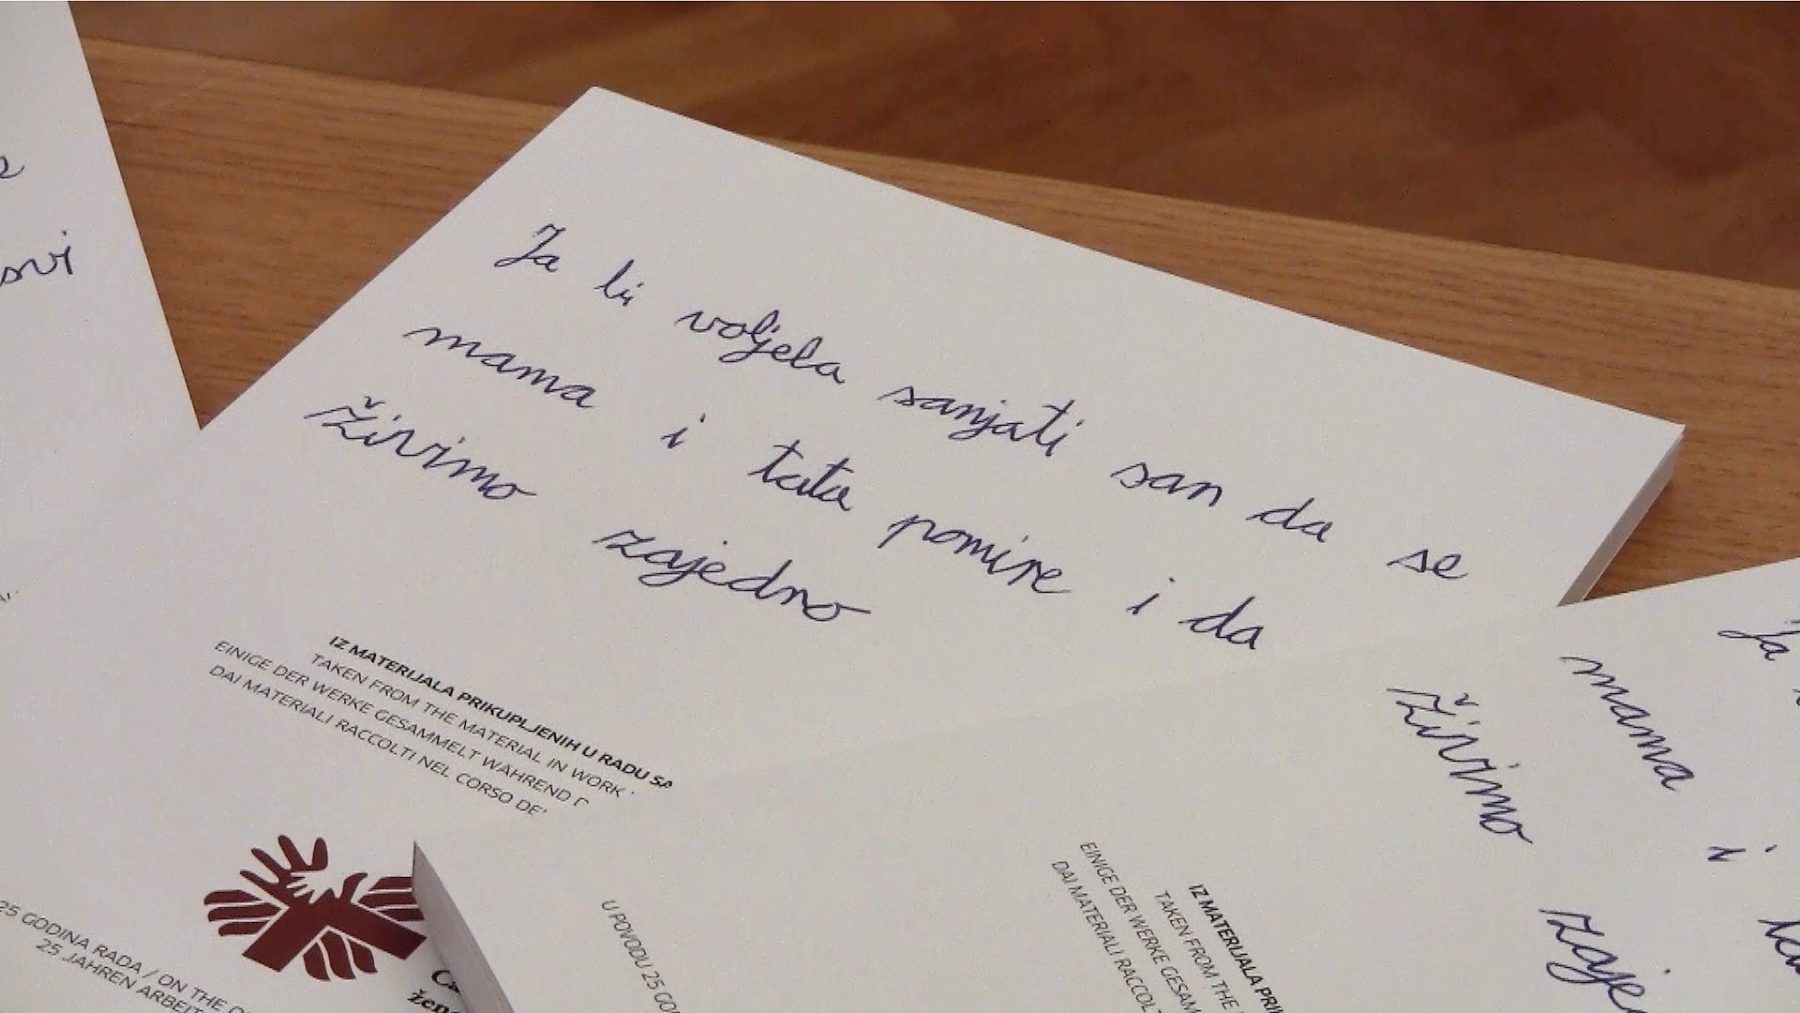 svi
Ja bi voljela sanjati san da se
mama i tata pomire i da
živimo zajedno
IZ MATERIJALA PRIKUPLJENIH U RADU SA
TAKEN FROM THE MATERIAL IN WORK
EINIGE DER WERKE GESAMMELT WÄHREND
DAI MATERIALI RACCOLTI NEL CORSO
25 GODINA RADA / ON THE
25 JAHREN
Ja
mama i
živimo
U POVODU 25
IZ MATERIJALA
TAKEN FROM THE
EINIGE DER WERKE
DAI MATERIALI